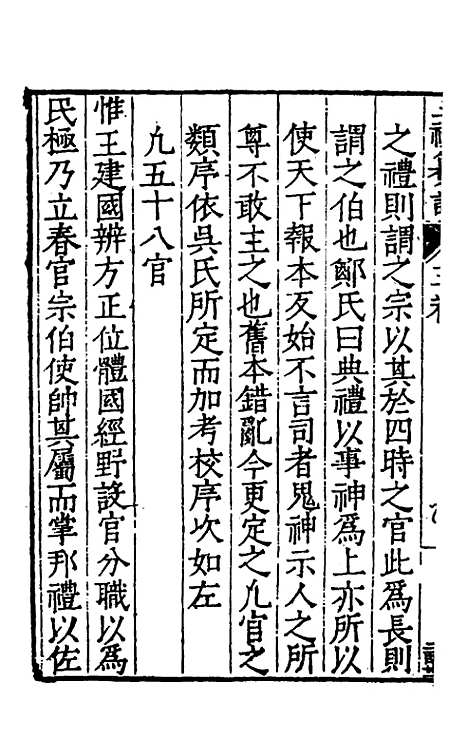 之禮則謂之宗以其於四時之官此爲長則
謂之伯也鄭氏曰典禮以事神爲上亦所以
使天下報本反始不言司者鬼神示人之所
尊不敢主之也舊本錯亂今更定之凢官之
類序依吳氏所定而加考校序次如左
凢五十八官
惟王建國辨方正位體國經野設官分職以爲
民極乃立春官宗伯使帥其屬而掌邦禮以佐